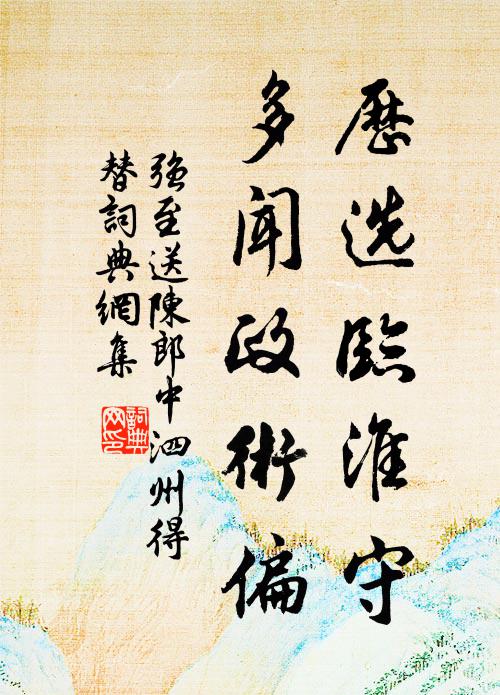 歷选臨淮守
多聞政術偏
強至送陳郎中泗州得
替詞典網集
詞典
网印